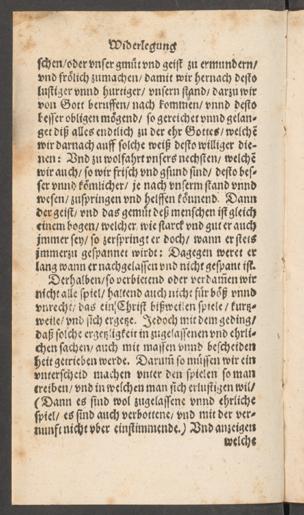 Widerlegung
schen/ oder vnser gmüt vnd geist zu ermundern/
vnd frölich zumachen/ damit wir hernach desto
lustiger vnnd hurtiger/ vnsern stand/ darzu wir
von Gott beruffen/ nach kommen/ vnnd desto
besser obligen mögend/ so gereichet vnnd gelan-
get diß alles endtlich zu der ehr Gottes/ welchē
wir darnach auff solche weiß desto williger die-
nen: Vnd zu wolfahrt vnsers nechsten/ welchē
wir auch/ so wir frisch vnd gsund sind/ desto bes-
ser vnnd kömlicher/ je nach vnserm stand vnnd
wesen/ zuspringen vnd helffen könnend. Dann
der geist/ vnd das gemüt deß menschen ist gleich
einem bogen/ welcher wie starck vnd gut er auch
jmmer sey/ so zerspringt er doch/ wann er stets
jmmerzu gespannet wirdt: Dagegen weret er
lang wann er nachgelassen vnd nicht gespañt ist.
Derhalben/ so verbietend oder verdam̃en wir
nicht alle spiel/ haltend auch nicht für böß vnnd
vnrecht/ das ein Christ bißweilen spiele/ kurtz-
weile/ vnd sich ergetze. Jedoch mit dem geding/
daß solche ergetzligkeit in zugelassenen vnd ehrli-
chen sachen/ auch mit massen vnnd bescheiden
heit getrieben werde. Darum̃ so müssen wir ein
vnterscheid machen vnter den spielen so man
treiben/ vnd in welchen man sich erlustigen wil/
(Dann es sind wol zugelassene vnnd ehrliche
spiel/ es sind auch verbottene/ vnd mit der ver-
nunfft nicht vber einstimmende.) Vnd anzeigen
welche